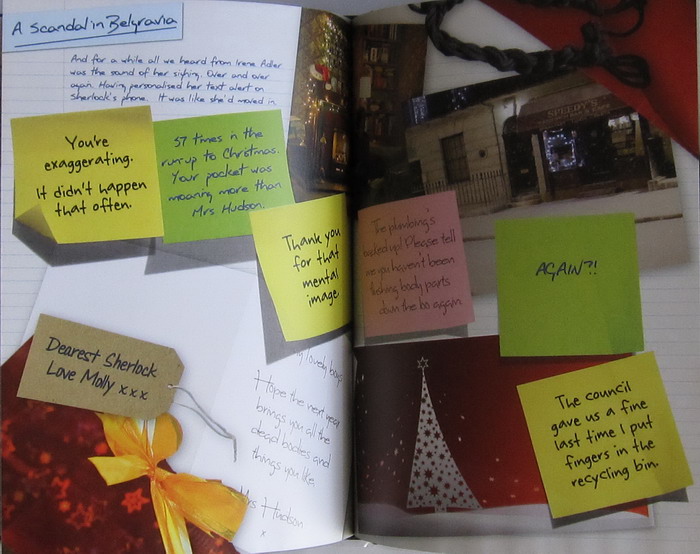 A Scandal in Belgravia
And for a while all we heard from Irene Adler
was the sound of her sighing. Over and over
again. Having personalised her text alert on
Sherlock's phone. It was like she'd moved in.
You're
exaggerating.
It didn't happen
that often.
57 times in the
run-up to Christmas.
Your pocket was
moaning more than
Mrs Hudson.
Thank you
for that
mental
image.
SPEEDY'S
The plumbing's
packed up! Please tell
me you haven't been
flushing body parts
down the bo again.
AGAIN?!
The council
gave us a fine
last time I put
fingers in the
recycling bin.
Dearest Sherlock
Love Molly xxx
lovely boys
Hope the next year
brings you all the
dead bodies and
things you like.
Mrs Hudson
x